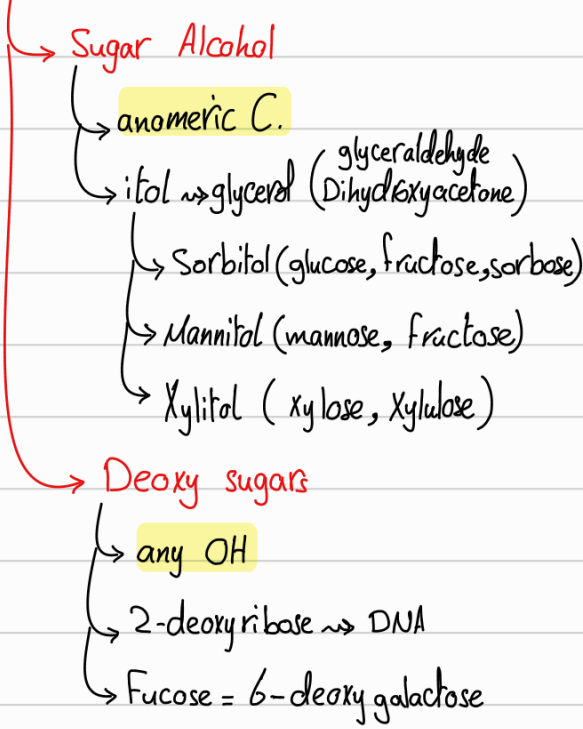 Sugar Alcohol
anomeric C.
itol → glycerol (glyceraldehyde
Dihydroxyacetone)
Sorbitol (glucose, fructose, sorbose)
Mannitol (mannose, fructose)
Xylitol (xylose, Xylulose)
Deoxy sugars
any OH
2-deoxyribose → DNA
Fucose = 6-deoxy galactose